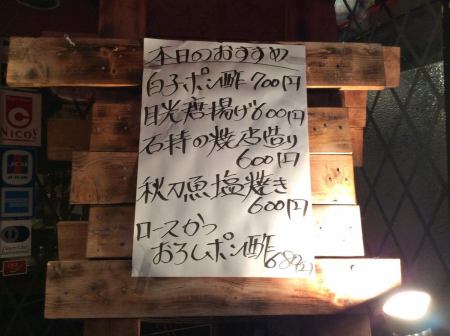 本日のおすすめ
白子ポン酢700円
目光唐揚げ600円
石持の焼皮造り
600円
秋刀魚塩焼き
600円
ロースかつ
おろしポン酢
NICOS
JCB